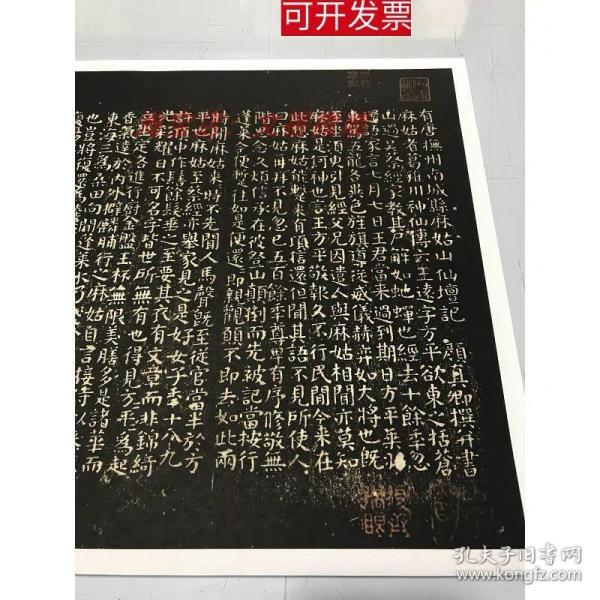 可开发票
有唐撫州南城縣麻姑山仙壇記 顔真卿撰并書
麻姑者葛稚川神仙傳云王遠字方平欲東之括蒼
山過吳蔡經家教其尸解如虵蟬也經去十餘年忽
還語家言七月七日王君當来過到期日方平乗羽
車駕五龍各異色旌旗導從威儀赫弈如大將也既
至坐須㬰引見經父兄因遣人與麻姑相聞亦莫知
麻姑是何神也言王方平敬報久不行民間今来在
此想麻姑能暫来有頃信還但聞其語不見所使人
曰麻姑再拜不見忽已五百餘年尊卑有序修敬無
階思念久煩信承在彼登山顛倒而先被記當按行
蓬萊今便暫往如是便還還即親觀願不即去如此兩
時間麻姑来時不先聞人馬聲既至從官當半於方
平也麻姑至蔡經亦舉家見之是好女子年十八九
許頂中作髻餘髮垂之至要其衣有文章而非錦綺
光彩耀日不可名字皆世所無有也得見方平為起
立坐定各進行廚金盤玉杯無限美膳多是諸華而
香氣達於內外擗麟脯行之麻姑自言接待以來見
東海三為桑田向間蓬萊水乃淺於
也豈將復還為陸
孔夫子旧书网
www.kongfz.com